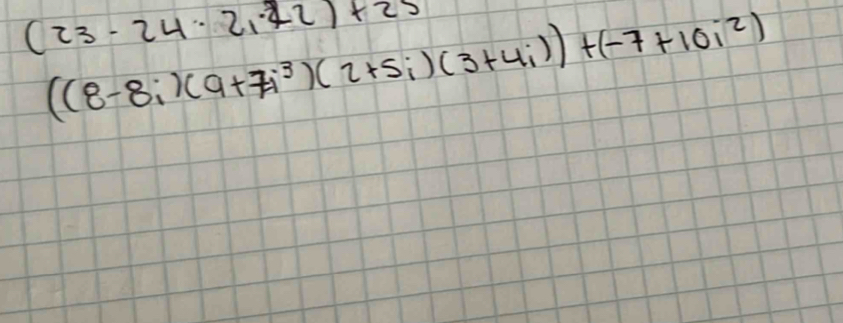 (23 - 24 · 2i · 22) + 25
((8-8i)(9+7i³)(2+5i)(3+4i)) + (-7+10i²)